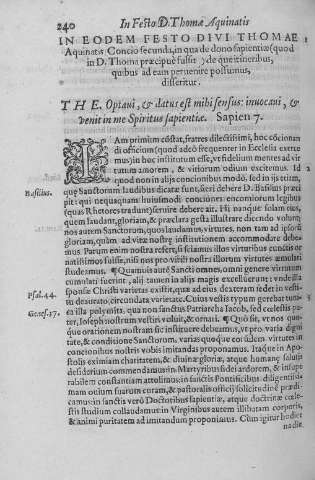 240
In Festo D. Thomæ Aquinatis
IN EODEM FESTO DIVI THOMAE
Aquinatis Concio secunda, in qua de dono sapientiæ (quod
in D. Thoma præcipuè fulsit) de quæ itineribus,
quibus ad eam peruenire possumus,
disseritur.
THE. Optaui, & datus est mihi sensus: inuocaui, &
venit in me Spiritus sapientiæ. Sapien 7.
IAm primùm cõstat, fratres dilectissimi, hoc cõcionan
di officium (quod adeò frequenter in Ecclesia exerce
mus) in hoc institutum esse, vt fidelium mentes ad vir
tutum amorem, & vitiorum odium excitemus. Id
quod non in alijs concionibus modò, sed in ijs etiam,
quæ Sanctorum laudibus dicatæ sunt, fieri debere D. Basilius præci
Basilius.
pit: qui nequaquam huiusmodi conciones encomiorum legibus
(quas Rhetores tradunt) seruire debere ait. Hi nanque solam eius,
quem laudant, gloriam, & præclara gesta illustrare dicendo volunt:
nos autem Sanctorum, quos laudamus, virtutes, non tam ad ipsorũ
gloriam, quàm ad vitæ nostræ institutionem accommodare debe-
mus. Parum enim nostra refert, si sciamus illos virtutibus cunctis or
natissimos fuisse, nisi nos pro viribus nostris illorum virtutes æmulari
studeamus. ¶ Quamuis autẽ Sancti omnes, omni genere virtutum
cumulati fuerint, alij tamen in alijs magis excelluerunt: vnde illa
sponsæ Christi varietas extitit, quæ ad eius dexteram sedet in vesti-
Psal. 44.
tu deaurato, circundata varietate. Cuius vestis typum gerebat tuni-
ca illa polymita, qua non sanctus Patriarcha Iacob, sed cælestis pa-
Genes. 37.
ter, Ioseph nostrum vestiri voluit, & ornari. ¶ Quò fit, vt nos quo-
que orationem nostram sic instituere debeamus, vt pro varia digni
tate, & conditione Sanctorum, varias quoque eorũdem virtutes in
concionibus nostris vobis imitandas proponamus. Itaque in Apo-
stolis eximiam charitatem, & diuinæ gloriæ, atque humanæ salutis
desiderium commendamus: in Martyribus fidei ardorem, & insupe
rabilem constantiam attollimus: in sanctis Pontificibus diligentissi-
mam ouium suarum curam, & pastoralis officij solicitudinẽ prædi-
camus: in sanctis verò Doctoribus sapientiæ, atque doctrinæ cœle-
stis studium collaudamus: in Virginibus autem illibatam corporis,
& animi puritatem ad imitandum proponimus. Cùm igitur hodier
na die